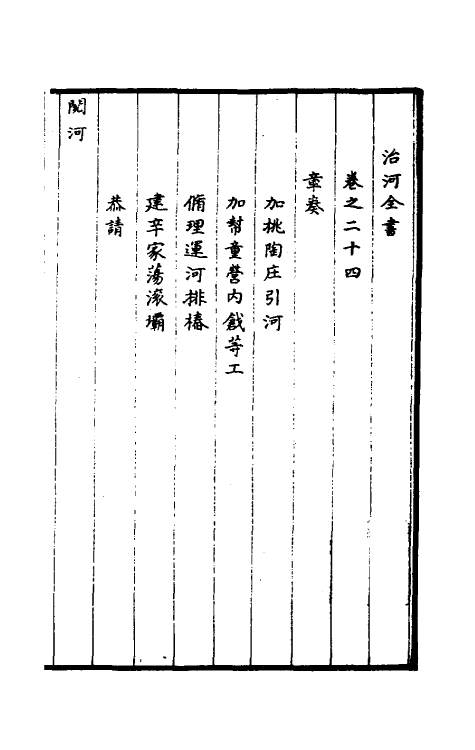 治河全書
卷之二十四
章奏
加挑陶庄引河
加幫童營內戧等工
脩理運河排樁
建辛家蕩滾壩
恭請
閱河